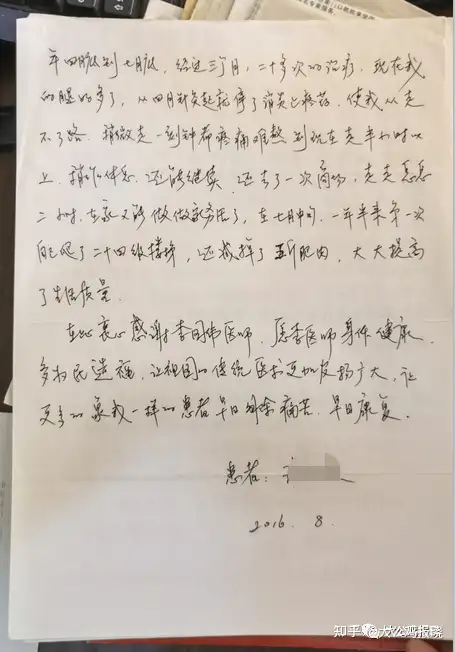 年四月底到七月底，经过三个月，二十多次的治疗，现在我
的腿好多了，从四月针灸起就停了消炎止疼药，使我从走
不了路，稍微走一刻钟都疼痛难熬到现在走半小时以
上，稍作休息，还能继续，还去了一次商场，走走息息
二小时，在家又能做做家务活了，在七月中旬，一年半来第一次
自己爬了二十四级楼梯，还减掉了五斤肥肉，大大提高
了生活质量。
在此衷心感谢李国伟医师，愿李医师身体健康，
多为民造福，让祖国的传统医术更加发扬广大，让
更多的象我一样的患者早日解除痛苦、早日康复。
患者：
2016. 8.
知乎 @大公鸡报晓